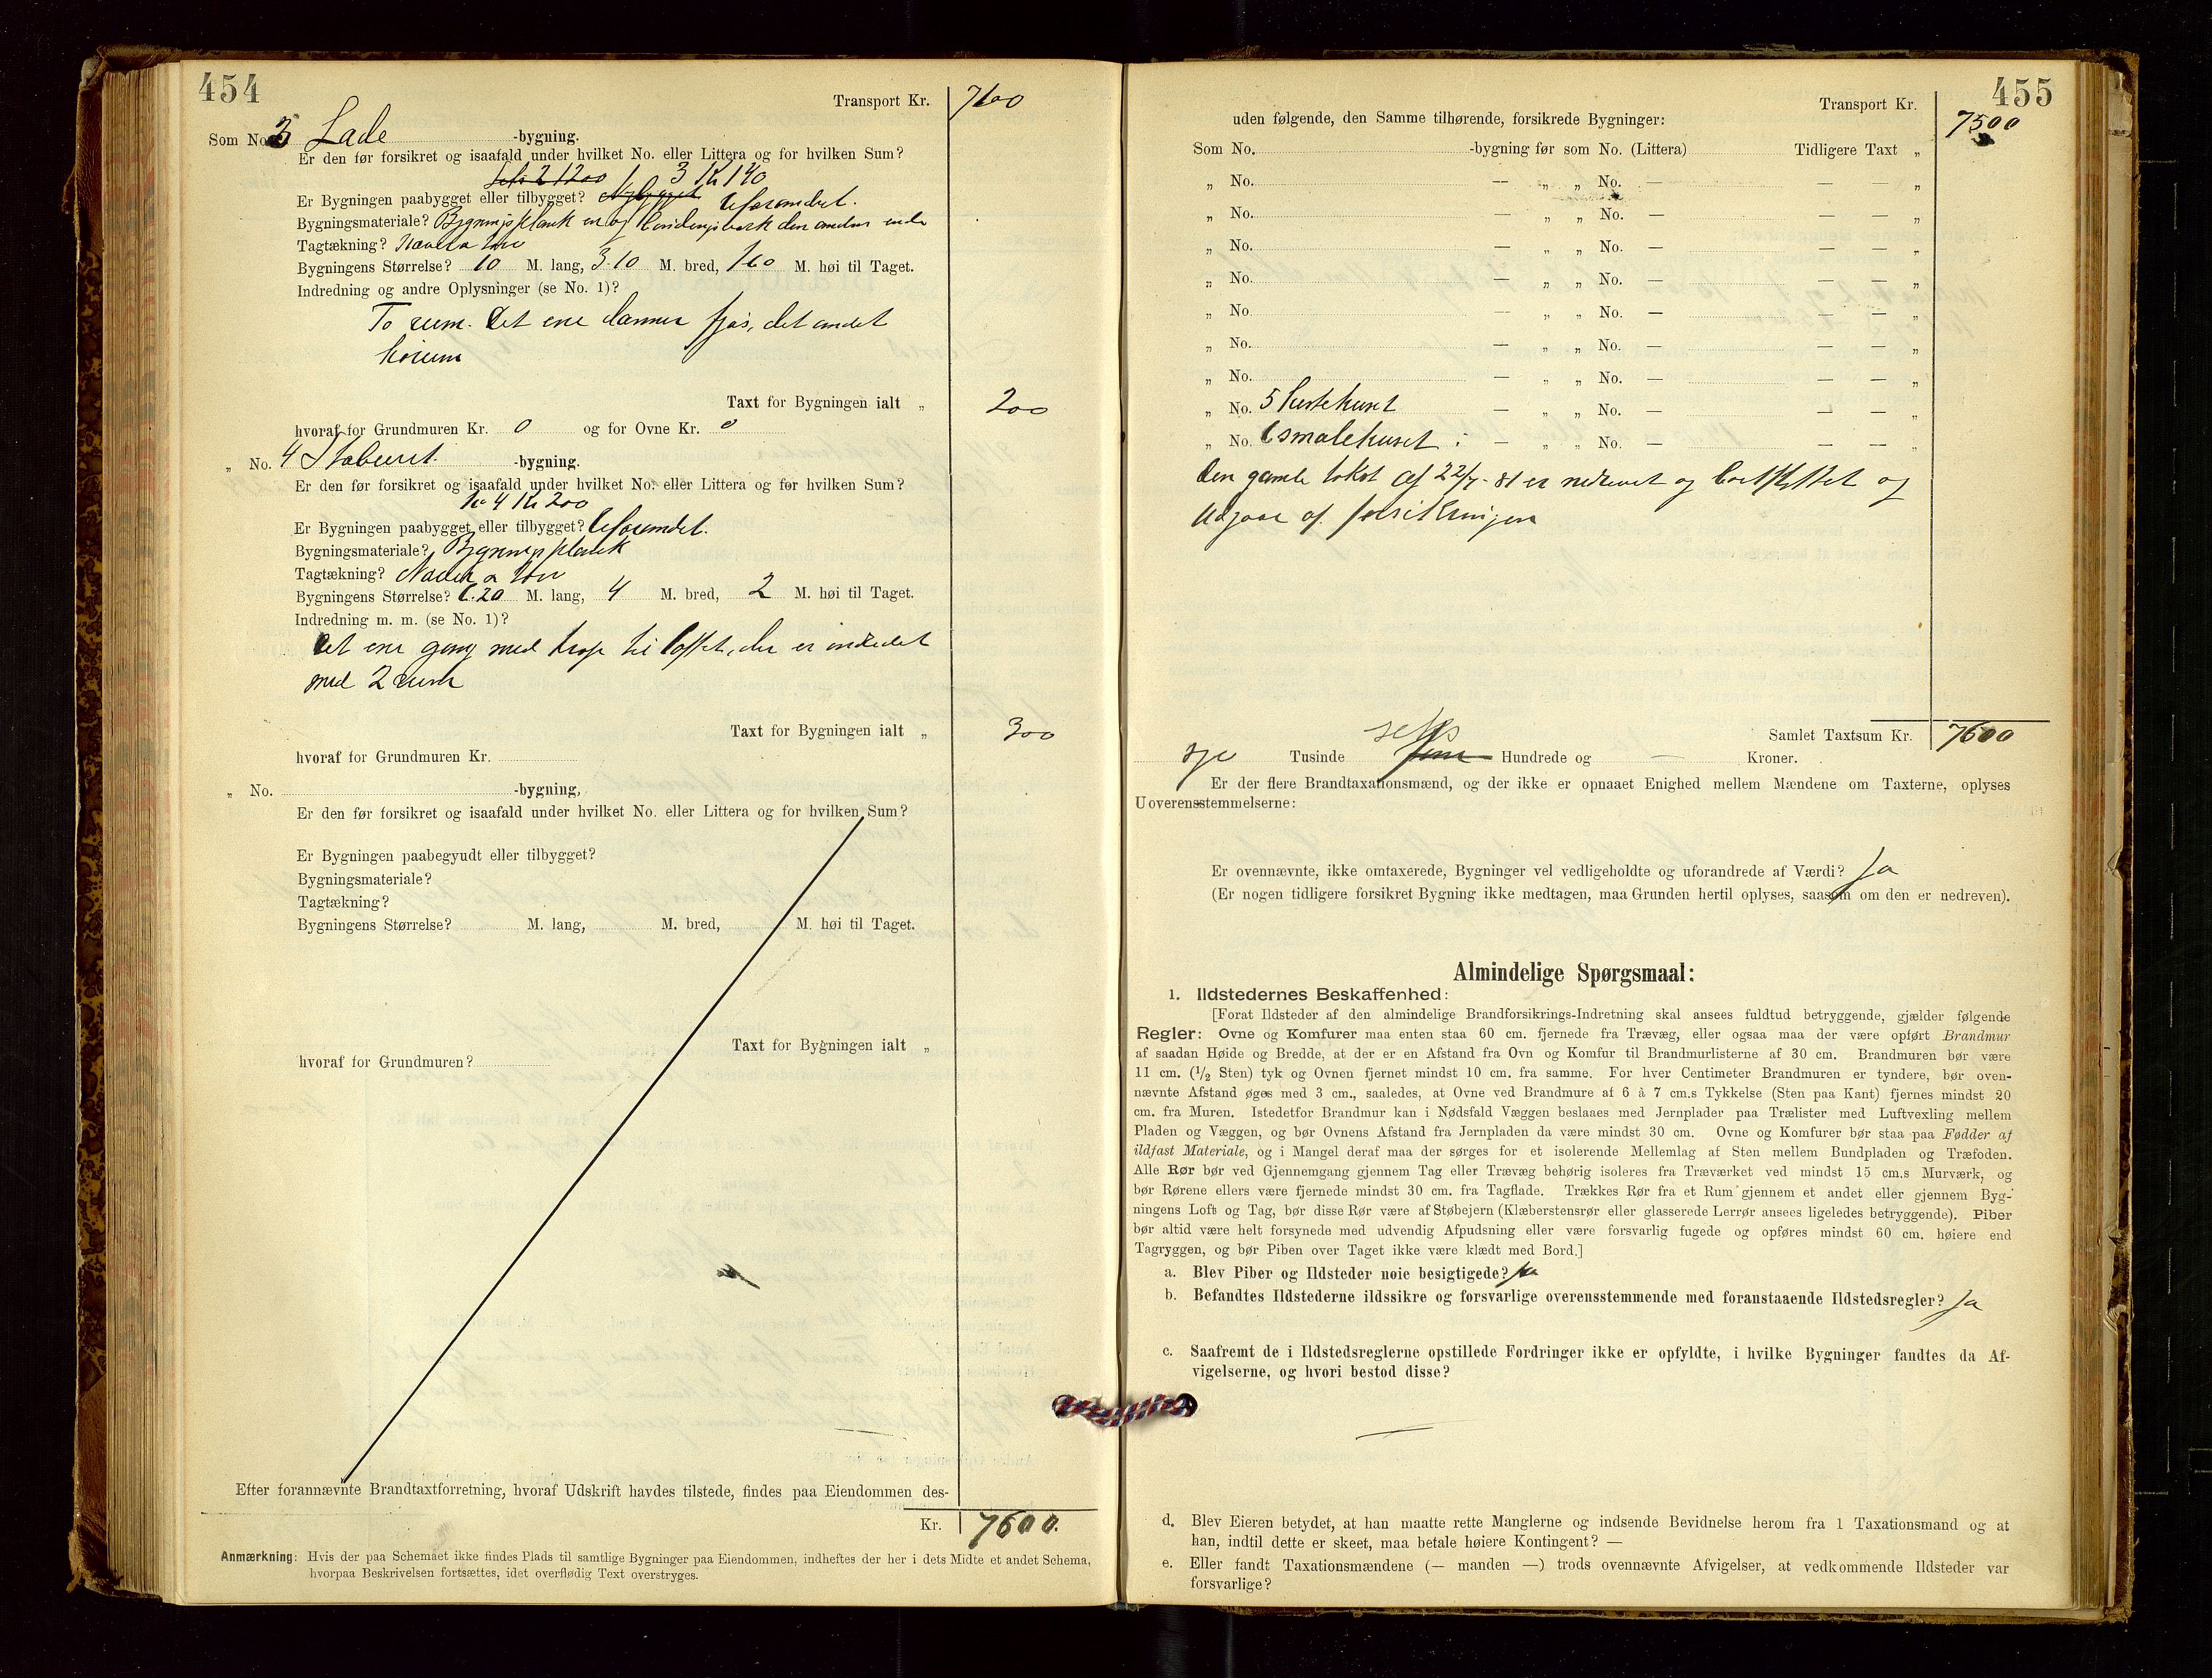 454
Transport Kr. 7100
Som No. 3 Lade -bygning.
Er den før forsikret og isaafald under hvilket No. eller Littera og for hvilken Sum?
3 Kr 140
Er Bygningen paabygget eller tilbygget? Uforandret.
Bygningsmateriale? Bygningsplank en og bindingsverk den anden ende
Tagtækning? Næver & torv
Bygningens Størrelse? 10 M. lang, 3.10 M. bred, 160 M. høi til Taget.
Indredning og andre Oplysninger (se No. 1)?
To rum. Det ene danner fjøs, det andet
hørum
Taxt for Bygningen ialt „ 200
hvoraf for Grundmuren Kr. 0 og for Ovne Kr. 0
„ No. 4 Staburet -bygning.
Er den før forsikret og isaafald under hvilket No. eller Littera og for hvilken Sum?
No 4 Kr 200
Er Bygningen paabygget eller tilbygget? Uforandret.
Bygningsmateriale? Bygningsplank
Tagtækning? Næver & torv
Bygningens Størrelse? 6.20 M. lang, 4 M. bred, 2 M. høi til Taget.
Indredning m. m. (se No. 1)?
Det ene gang med trap til loftet, der er indredet
med 2 rum
Taxt for Bygningen ialt „ 300
hvoraf for Grundmuren Kr.
„ No. -bygning.
Er den før forsikret og isaafald under hvilket No. eller Littera og for hvilken Sum?
Er Bygningen paabegyndt eller tilbygget?
Bygningsmateriale?
Tagtækning?
Bygningens Størrelse? M. lang, M. bred, M. høi til Taget.
Taxt for Bygningen ialt „
hvoraf for Grundmuren?
Efter forannævnte Brandtaxtforretning, hvoraf Udskrift havdes tilstede, findes paa Eiendommen des-
Kr. 7600.
Anmærkning: Hvis der paa Schemaet ikke findes Plads til samtlige Bygninger paa Eiendommen, indheftes der her i dets Midte et andet Schema,
hvorpaa Beskrivelsen fortsættes, idet overflødig Text overstryges.
455
Transport Kr. 7500
uden følgende, den Samme tilhørende, forsikrede Bygninger:
Som No. -bygning før som No. (Littera) Tidligere Taxt „
„ No. — „ „ No. — — — „
„ No. — „ „ No. — — — „
„ No. — „ „ No. — — — „
„ No. — „ „ No. — — — „
„ No. — „ „ No. — — — „
„ No. — „ „ No. — — — „
„ No. — „ „ No. — — — „
„ No. 5 hestehuset — „ „ No. — — — „
„ No. 6 smalehuset i — „ „ No. — — — „
den gamle takst af 22/7-81 er nedrevet og bortflyttet og
udgaar af forsikringen
Samlet Taxtsum Kr. 7600
syv Tusinde seks Hundrede og — Kroner.
Er der flere Brandtaxationsmænd, og der ikke er opnaaet Enighed mellem Mændene om Taxterne, oplyses
Uoverensstemmelserne:
Er ovennævnte, ikke omtaxerede, Bygninger vel vedligeholdte og uforandrede af Værdi? Ja
(Er nogen tidligere forsikret Bygning ikke medtagen, maa Grunden hertil oplyses, saasom om den er nedreven).
Almindelige Spørgsmaal:
1. Ildstedernes Beskaffenhed:
[Forat Ildsteder af den almindelige Brandforsikrings-Indretning skal ansees fuldtud betryggende, gjælder følgende
Regler: Ovne og Komfurer maa enten staa 60 cm. fjernede fra Trævæg, eller ogsaa maa der være opført Brandmur
af saadan Høide og Bredde, at der er en Afstand fra Ovn og Komfur til Brandmurlisterne af 30 cm. Brandmuren bør være
11 cm. (1/2 Sten) tyk og Ovnen fjernet mindst 10 cm. fra samme. For hver Centimeter Brandmuren er tyndere, bør oven-
nævnte Afstand øges med 3 cm., saaledes, at Ovne ved Brandmure af 6 à 7 cm.s Tykkelse (Sten paa Kant) fjernes mindst 20
cm. fra Muren. Istedetfor Brandmur kan i Nødsfald Væggen beslaaes med Jernplader paa Trælister med Luftvexling mellem
Pladen og Væggen, og bør Ovnens Afstand fra Jernpladen da være mindst 30 cm. Ovne og Komfurer bør staa paa Fødder af
ildfast Materiale, og i Mangel deraf maa der sørges for et isolerende Mellemlag af Sten mellem Bundpladen og Træfoden.
Alle Rør bør ved Gjennemgang gjennem Tag eller Trævæg behørig isoleres fra Træværket ved mindst 15 cm.s Murværk, og
bør Rørene ellers være fjernede mindst 30 cm. fra Tagflade. Trækkes Rør fra et Rum gjennem et andet eller gjennem Byg-
ningens Loft og Tag, bør disse Rør være af Støbejern (Klæberstensrør eller glasserede Lerrør ansees ligeledes betryggende). Piber
bør altid være helt forsynede med udvendig Afpudsning eller være forsvarlig fugede og opføres mindst 60 cm. høiere end
Tagryggen, og bør Piben over Taget ikke være klædt med Bord.]
a. Blev Piber og Ildsteder nøie besigtigede? Ja
b. Befandtes Ildstederne ildssikre og forsvarlige overensstemmende med foranstaaende Ildstedsregler? Ja
c. Saafremt de i Ildstedsreglerne opstillede Fordringer ikke er opfyldte, i hvilke Bygninger fandtes da Af-
vigelserne, og hvori bestod disse?
d. Blev Eieren betydet, at han maatte rette Manglerne og indsende Bevidnelse herom fra 1 Taxationsmand og at
han, indtil dette er skeet, maa betale høiere Kontingent? —
e. Eller fandt Taxationsmændene (— manden —) trods ovennævnte Afvigelser, at vedkommende Ildsteder var
forsvarlige?